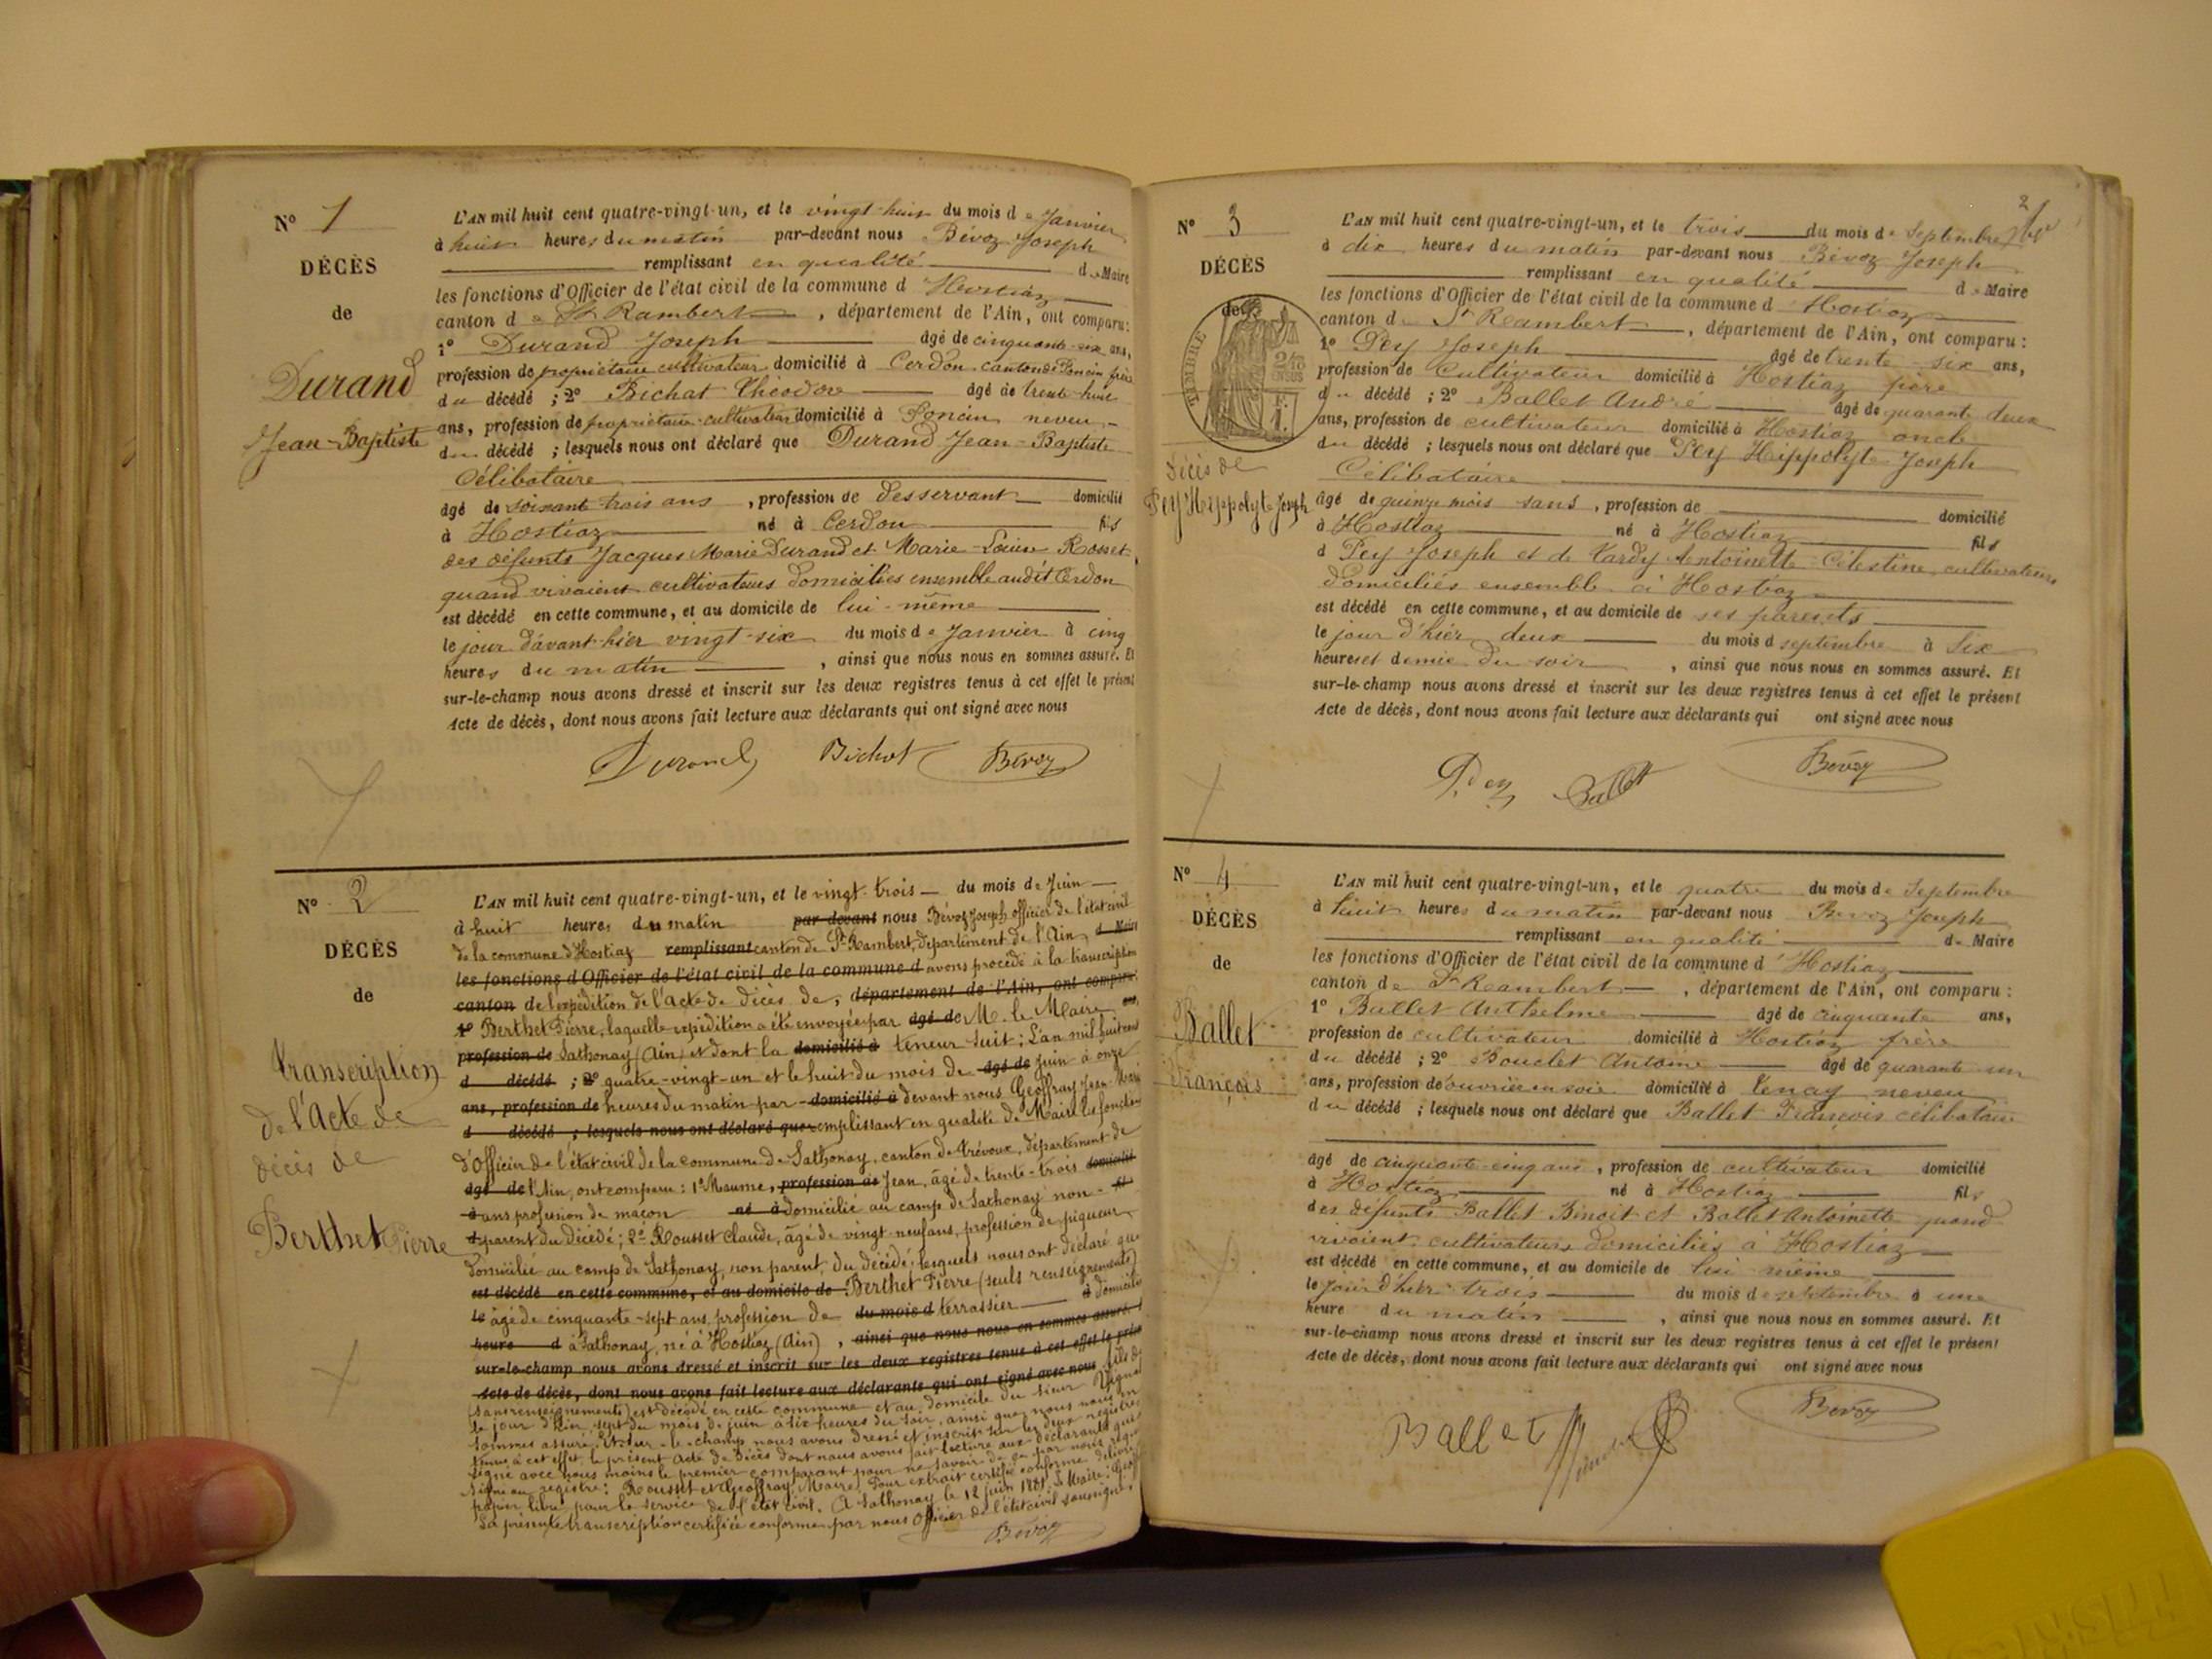 N° 1
DÉCÈS
de
Durand
Jean-Baptiste
L'AN mil huit cent quatre-vingt-un, et le vingt-huit du mois de Janvier
à huit heures du matin par-devant nous Bévoz Joseph
remplissant en qualité de Maire
les fonctions d'Officier de l'état civil de la commune d'Hostiaz
canton de St Rambert, département de l'Ain, ont comparu:
1° Durand Joseph âgé de cinquante-six ans,
profession de propriétaire cultivateur domicilié à Cerdon canton de Poncin frère
du décédé ; 2° Bichat Théodore âgé de trente-huit
ans, profession de propriétaire-cultivateur domicilié à Poncin neveu
du décédé ; lesquels nous ont déclaré que Durand Jean-Baptiste
Célibataire
âgé de soixante trois ans, profession de desservant domicilié
à Hostiaz né à Cerdon fils
des défunts Jacques Marie Durand et Marie-Louise Rosset
quand vivaient cultivateurs domiciliés ensemble audit Cerdon
est décédé en cette commune, et au domicile de lui-même
le jour d'avant-hier vingt-six du mois de Janvier à cinq
heures du matin, ainsi que nous nous en sommes assuré. Et
sur-le-champ nous avons dressé et inscrit sur les deux registres tenus à cet effet le présent
Acte de décès, dont nous avons fait lecture aux déclarants qui ont signé avec nous
Durand Bichat Bévoz
N° 2
DÉCÈS
de
transcription
de l'Acte de
décès de
Berthet Pierre
L'AN mil huit cent quatre-vingt-un, et le vingt-trois du mois de Juin
à huit heures du matin par-devant nous Bévoz Joseph officier de l'état civil
de la commune d'Hostiaz remplissant canton de St Rambert, département de l'Ain, d Maire
les fonctions d'Officier de l'état civil de la commune d avons procédé à la transcription
canton de l'expédition de l'acte de décès de, département de l'Ain, ont comparu:
1° Berthet Pierre, laquelle expédition a été envoyée par âgé de M. le Maire ans,
profession de Sathonay (Ain) et dont la domicilié à teneur suit: L'an mil huit cent
d décédé ; 2° quatre-vingt-un et le huit du mois de âgé de juin à onze
ans, profession de heures du matin par-domicilié à devant nous Geoffray Jean Marie
d décédé ; lesquels nous ont déclaré que remplissant en qualité de Maire les fonctions
d'Officier de l'état civil de la commune de Sathonay, canton de Trévoux, département de
âgé de l'Ain, ont comparu: 1° Maume, profession de Jean, âgé de trente-trois domicilié
à ans profession de maçon né à domicilié au camp de Sathonay non- fil
parent du décédé; 2° Rousset Claude, âgé de vingt-neuf ans, profession de piqueur
domicilié au camp de Sathonay, non parent du décédé, lesquels nous ont déclaré que
est décédé en cette commune, et au domicile de Berthet Pierre (seuls renseignements)
le âgé de cinquante-sept ans, profession de du mois d terrassier à domicilié
heure d à Sathonay, né à Hostiaz (Ain), ainsi que nous nous en sommes assuré. Et
sur-le-champ nous avons dressé et inscrit sur les deux registres tenus à cet effet le présent
Acte de décès, dont nous avons fait lecture aux déclarants qui ont signé avec nous fils de
(sans renseignements) est décédé en cette commune et au domicile du sieur
le jour d'hier, sept du mois de juin à six heures du soir, ainsi que nous nous en
sommes assuré. Et sur-le-champ nous avons dressé et inscrit sur les deux registres
tenus à cet effet le présent acte de décès dont nous avons fait lecture aux déclarants qui ont
signé avec nous moins le premier comparant pour ne savoir de ce par nous
Signé au registre: Rousset et Geoffray, Maire. Pour extrait certifié conforme délivré
papier libre pour le service de l'état civil. A Sathonay le 12 juin 1881. Le Maire:
La présente transcription certifiée conforme par nous Officier de l'état civil soussigné.
Bévoz
2
N° 3
DÉCÈS
de
TIMBRE
décès de
Pey Hippolyte Joseph
L'AN mil huit cent quatre-vingt-un, et le trois du mois de Septembre
à dix heures du matin par-devant nous Bévoz Joseph
remplissant en qualité de Maire
les fonctions d'Officier de l'état civil de la commune d'Hostiaz
canton de St Rambert, département de l'Ain, ont comparu:
1° Pey Joseph âgé de trente-six ans,
profession de Cultivateur domicilié à Hostiaz père
du décédé ; 2° Ballet André âgé de quarante deux
ans, profession de cultivateur domicilié à Hostiaz oncle
du décédé ; lesquels nous ont déclaré que Pey Hippolyte Joseph
Célibataire
âgé de quinze mois sans, profession de domicilié
à Hostiaz né à Hostiaz fils
d Pey Joseph et de Vardy Antoinette-Célestine, cultivateurs
domiciliés ensemble à Hostiaz
est décédé en cette commune, et au domicile de ses parents
le jour d'hier deux du mois d septembre à six
heures et demie du soir, ainsi que nous nous en sommes assuré. Et
sur-le-champ nous avons dressé et inscrit sur les deux registres tenus à cet effet le présent
Acte de décès, dont nous avons fait lecture aux déclarants qui ont signé avec nous
Pey Ballet Bévoz
N° 4
DÉCÈS
de
Ballet
François
L'AN mil huit cent quatre-vingt-un, et le quatre du mois de Septembre
à huit heures du matin par-devant nous Bévoz Joseph
remplissant en qualité de Maire
les fonctions d'Officier de l'état civil de la commune d'Hostiaz
canton de St Rambert, département de l'Ain, ont comparu:
1° Ballet Anthelme âgé de cinquante ans,
profession de cultivateur domicilié à Hostiaz frère
du décédé ; 2° Bouclet Antoine âgé de quarante un
ans, profession de ouvrier en soie domicilié à Tenay neveu
du décédé ; lesquels nous ont déclaré que Ballet François célibataire
âgé de cinquante-cinq ans, profession de cultivateur domicilié
à Hostiaz né à Hostiaz fils
des défunts Ballet Benoit et Ballet Antoinette quand
vivaient cultivateurs domiciliés à Hostiaz
est décédé en cette commune, et au domicile de lui-même
le jour d'hier trois du mois de septembre à une
heure du matin, ainsi que nous nous en sommes assuré. Et
sur-le-champ nous avons dressé et inscrit sur les deux registres tenus à cet effet le présent
Acte de décès, dont nous avons fait lecture aux déclarants qui ont signé avec nous
Ballet Bévoz